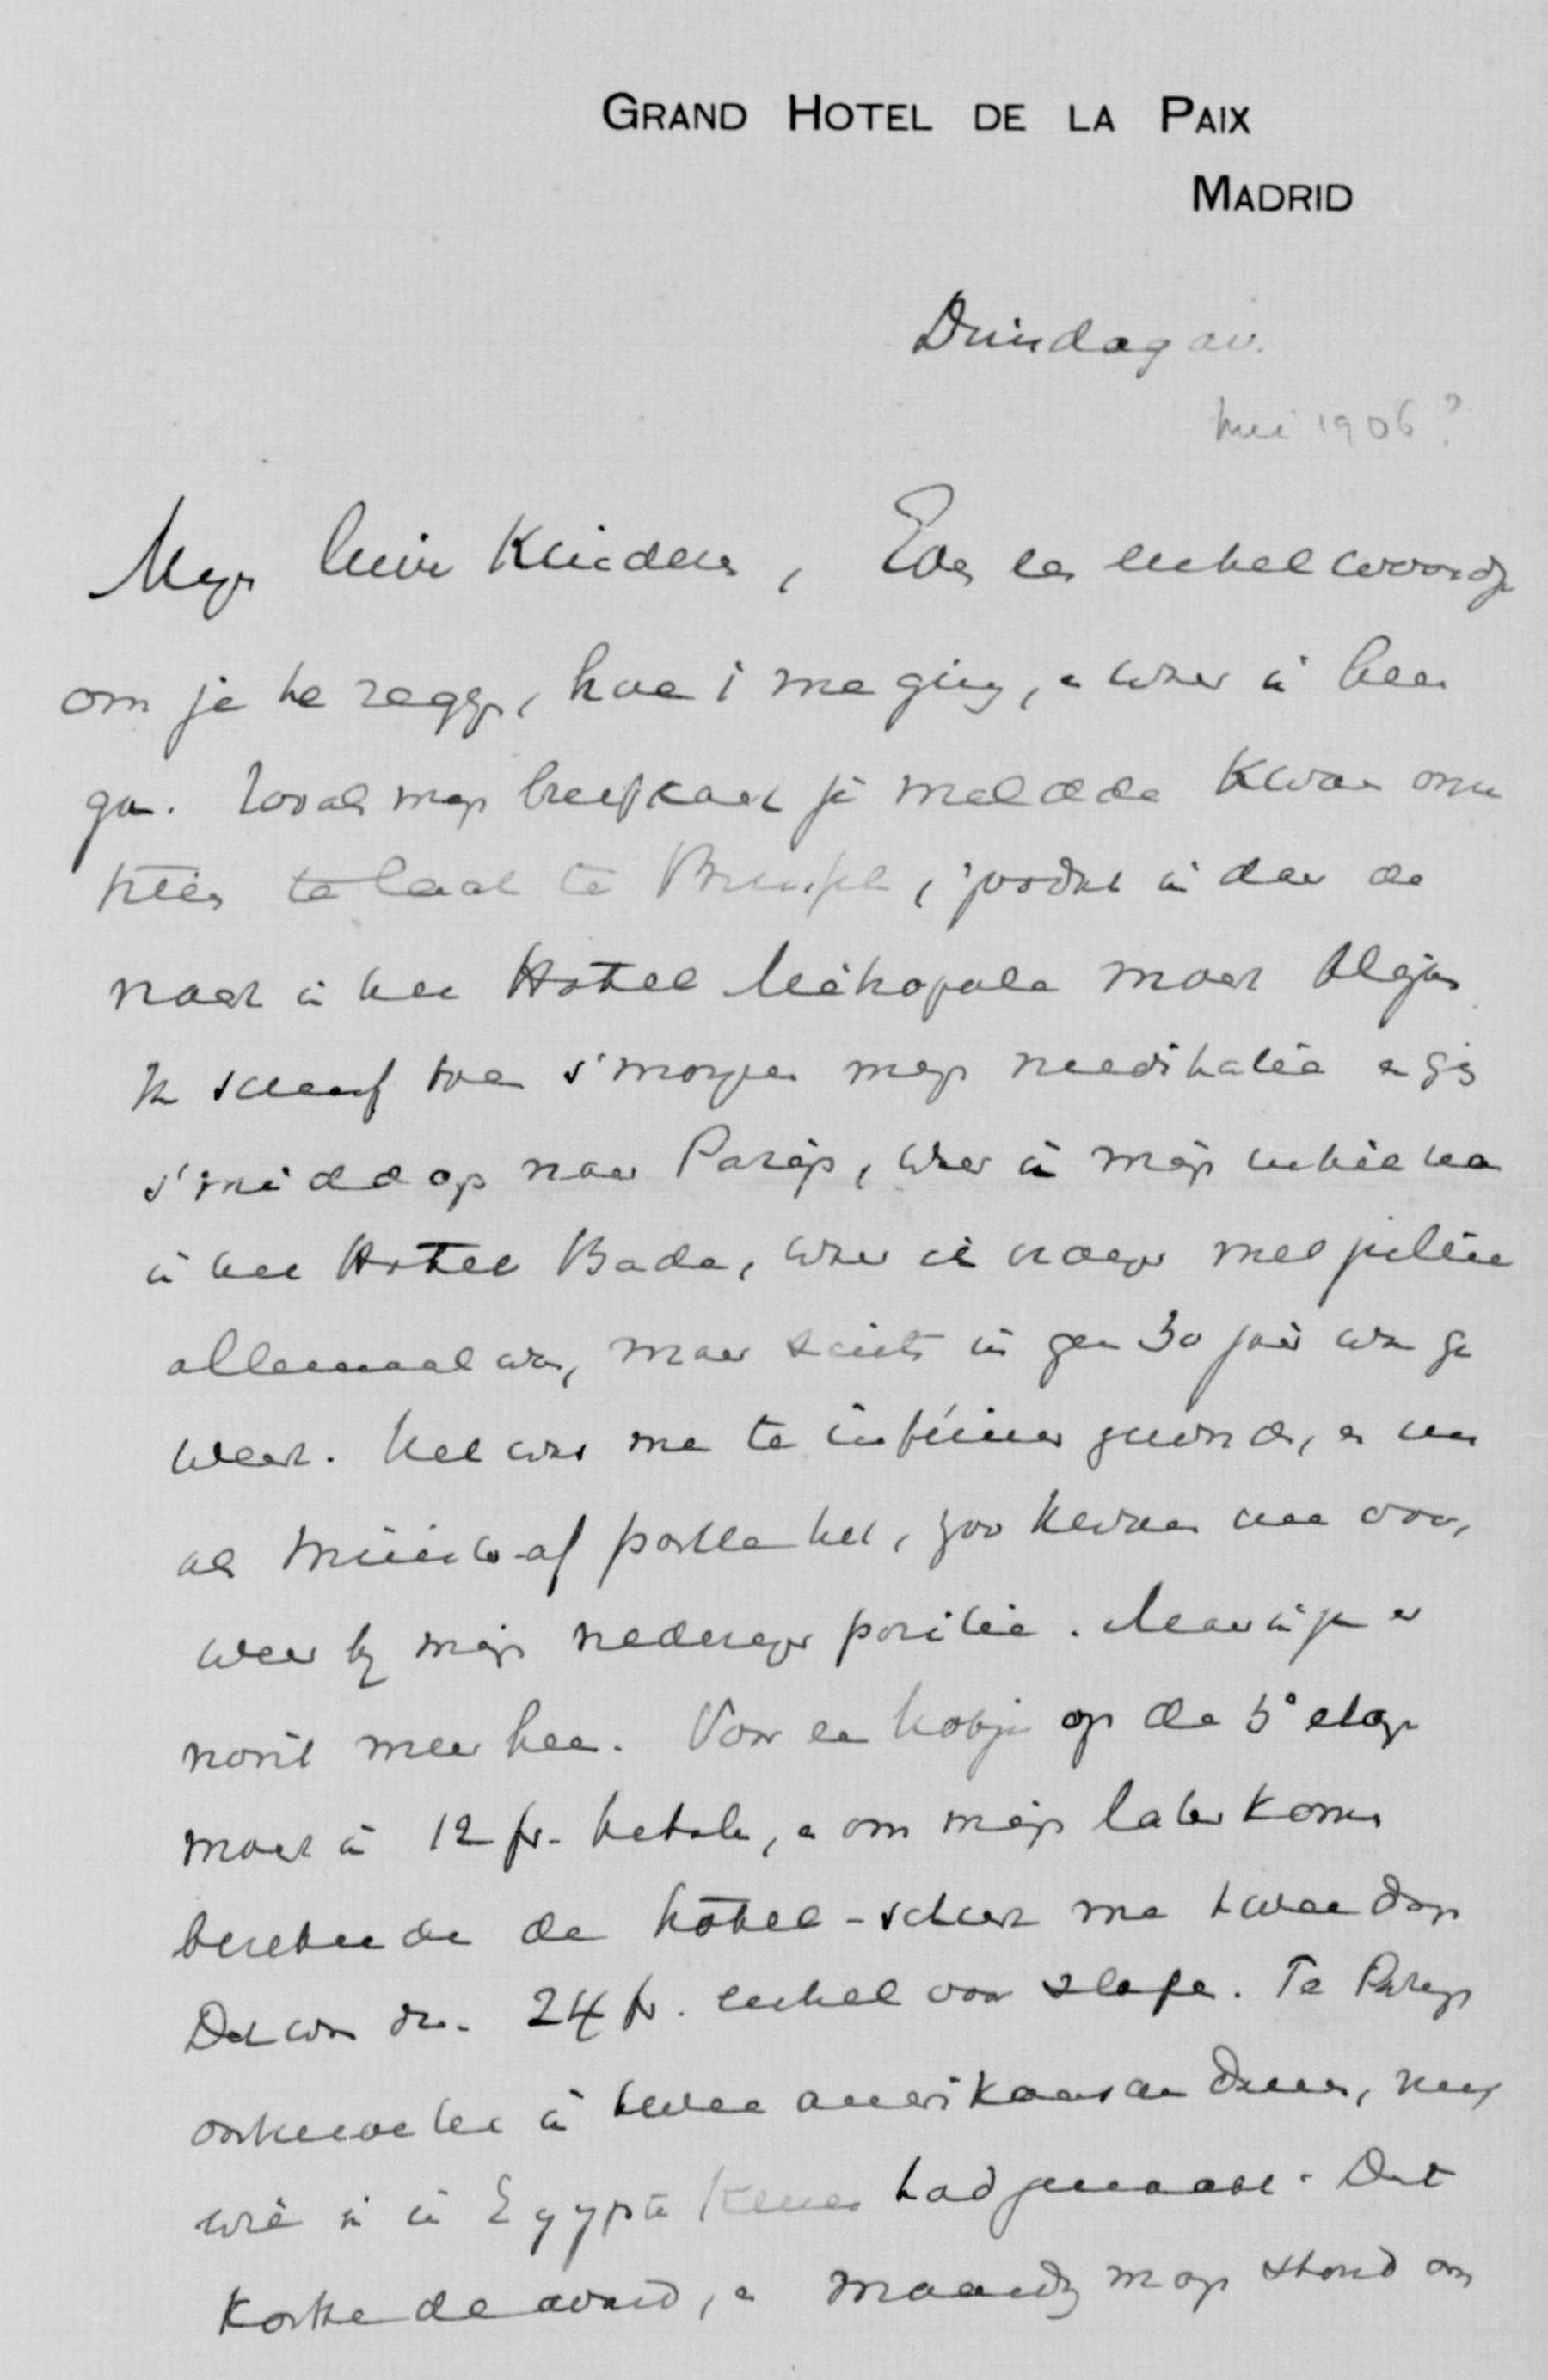 GRAND HOTEL DE LA PAIX
MADRID
Dinsdag av.
Mei 1906?
Mijn lieve Kinderen, Even een enkel woordje
om je te zeggen, hoe 't me ging, en waar ik heen
ga. Zooals mijn briefkaart je meldde kwam onze
trein te laat te Brussel, zoodat ik daar de
nacht in het Hotel Métropole moest blijven
Ik schreef toen s'morgens mijn meditatie en ging
s'middags naar Parijs, waar ik mijn intrek nam
in het Hotel Bade, waar ik vroeger met jullie
allemaal was, maar sints in geen 30 jaar was ge
weest. Het was me te
als Minister-af paste het, zoo kwam me voor,
weer bij mijn nederiger positie. Maar ik ga er
nooit meer heen. Voor een hokje op de 5e etage
moest ik 12 fr. betalen, en om mijn later komen
berekende de hôtel-schurk me twee dagen
Dat was dus 24 fr. enkel voor slapen. Te Parijs
ontmoette ik twee amerikaansche dames, met
wie ik in Egypte kennis had gemaakt. Dat
kortte de avond, en maandag morgen stond om